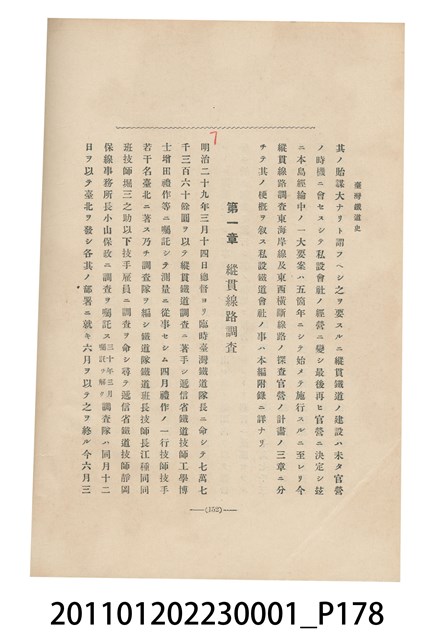 臺灣鐵道史
其ノ貽謀大ナリト謂フヘシ之ヲ要スルニ縱貫鐵道ノ建設ハ未タ官營
ノ時機ニ會セスシテ私設會社ノ經營ニ變シ最後再ヒ官營ニ決定シ玆
ニ本島經綸中ノ一大要案ハ五箇年ニシテ始メテ施行スルニ至レリ今
縱貫線路調查東海岸線及東西橫斷線路ノ探查官營ノ計畫ノ三章ニ分
チテ其ノ梗概ヲ叙ス私設鐵道會社ノ事ハ本編附錄ニ詳ナリ
第一章 縱貫線路調查
明治二十九年三月十四日總督ヨリ臨時臺灣鐵道隊長ニ命シテ七萬七
千三百六十餘圓ヲ以テ縱貫鐵道調查ニ著手シ遞信省鐵道技師工學博
士增田禮作等ニ囑託シテ測量ニ從事セシム四月禮作ノ一行技師技手
若干名臺北ニ著ス乃チ調查隊ヲ編シ鐵道隊鐵道班長技師長江種同同
班技師堀三之助以下技手雇員ニ調查ヲ命シ尋テ遞信省鐵道技師靜岡
保線事務所長小山保政ニ調查ヲ囑託ス三十年三月囑託ヲ解ク調查隊ハ同月十二
日ヲ以テ臺北ヲ發シ各其ノ部署ニ就キ六月ヲ以テ之ヲ終ル今六月三
(152)
201101202230001_P178